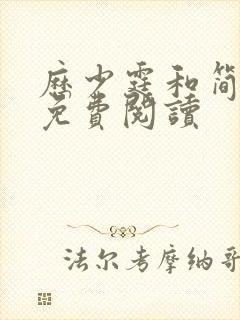 历少霆和简
免費閱讀
法尔考摩纳哥